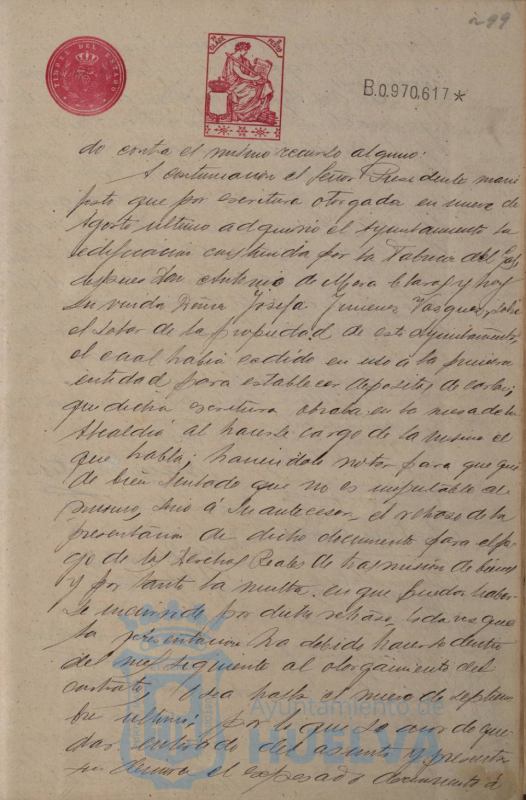 299
TIMBRE DEL ESTADO
B.0.970.617*
do contra el mismo recurso alguno.
A continuación el Señor Presidente mani
festó que por escritura otorgada en nueve de
Agosto último adquirió el Ayuntamiento la
edificación construida por la Fábrica del Gas,
despues Don Antonio de Mora Claros y hoy
su viuda Doña Josefa Jimenez Vasquez, sobre
el solar de la propiedad de este Ayuntamiento,
el cual habia cedido en uso á la primera
entidad para establecer depositos de carbon;
que dicha escritura obraba en la mesa de la
Alcaldia al hacerse cargo de la misma el
que habla; haciendolo notar para que que
de bien sentado que no es imputable al
mismo, sino á su antecesor, el retraso de la
presentación de dicho documento para el pa
go de los Derechos Reales de trasmisión de bienes
y por tanto la multa en que pueda haber
se incurrido por dicho retraso, toda vez que
la presentación ha debido hacerse dentro
del mes siguiente al otorgamiento del
contrato, ó sea hasta el nueve de septiem
bre último; por lo que se acordó que
dar enterado del asunto y presenta
el expresado documento á
Ayuntamiento de
HUELVA